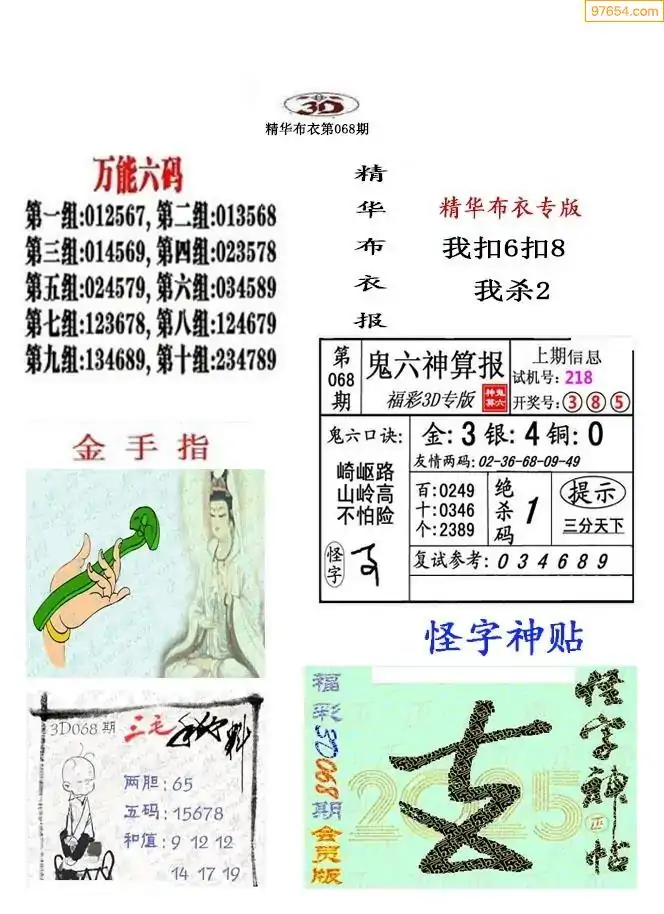 97654.com
3D
精华布衣第068期
万能六码
第一组:012567, 第二组:013568
第三组:014569, 第四组:023578
第五组:024579, 第六组:034589
第七组:123678, 第八组:124679
第九组:134689, 第十组:234789
精华布衣报
精华布衣专版
我扣6扣8
我杀2
第068期
鬼六神算报
福彩3D专版
鬼六神算
上期信息
试机号: 218
开奖号: 3 8 5
鬼六口诀:
崎岖路
山岭高
不怕险
怪字
金: 3 银: 4 铜: 0
友情两码: 02-36-68-09-49
百:0249
十:0346
个:2389
绝杀码
1
提示
三分天下
复试参考: 0 3 4 6 8 9
金手指
3D068期
三毛
两胆: 65
五码: 15678
和值: 9 12 12
14 17 19
怪字神贴
福彩3D068期会员版
2025
怪字神帖